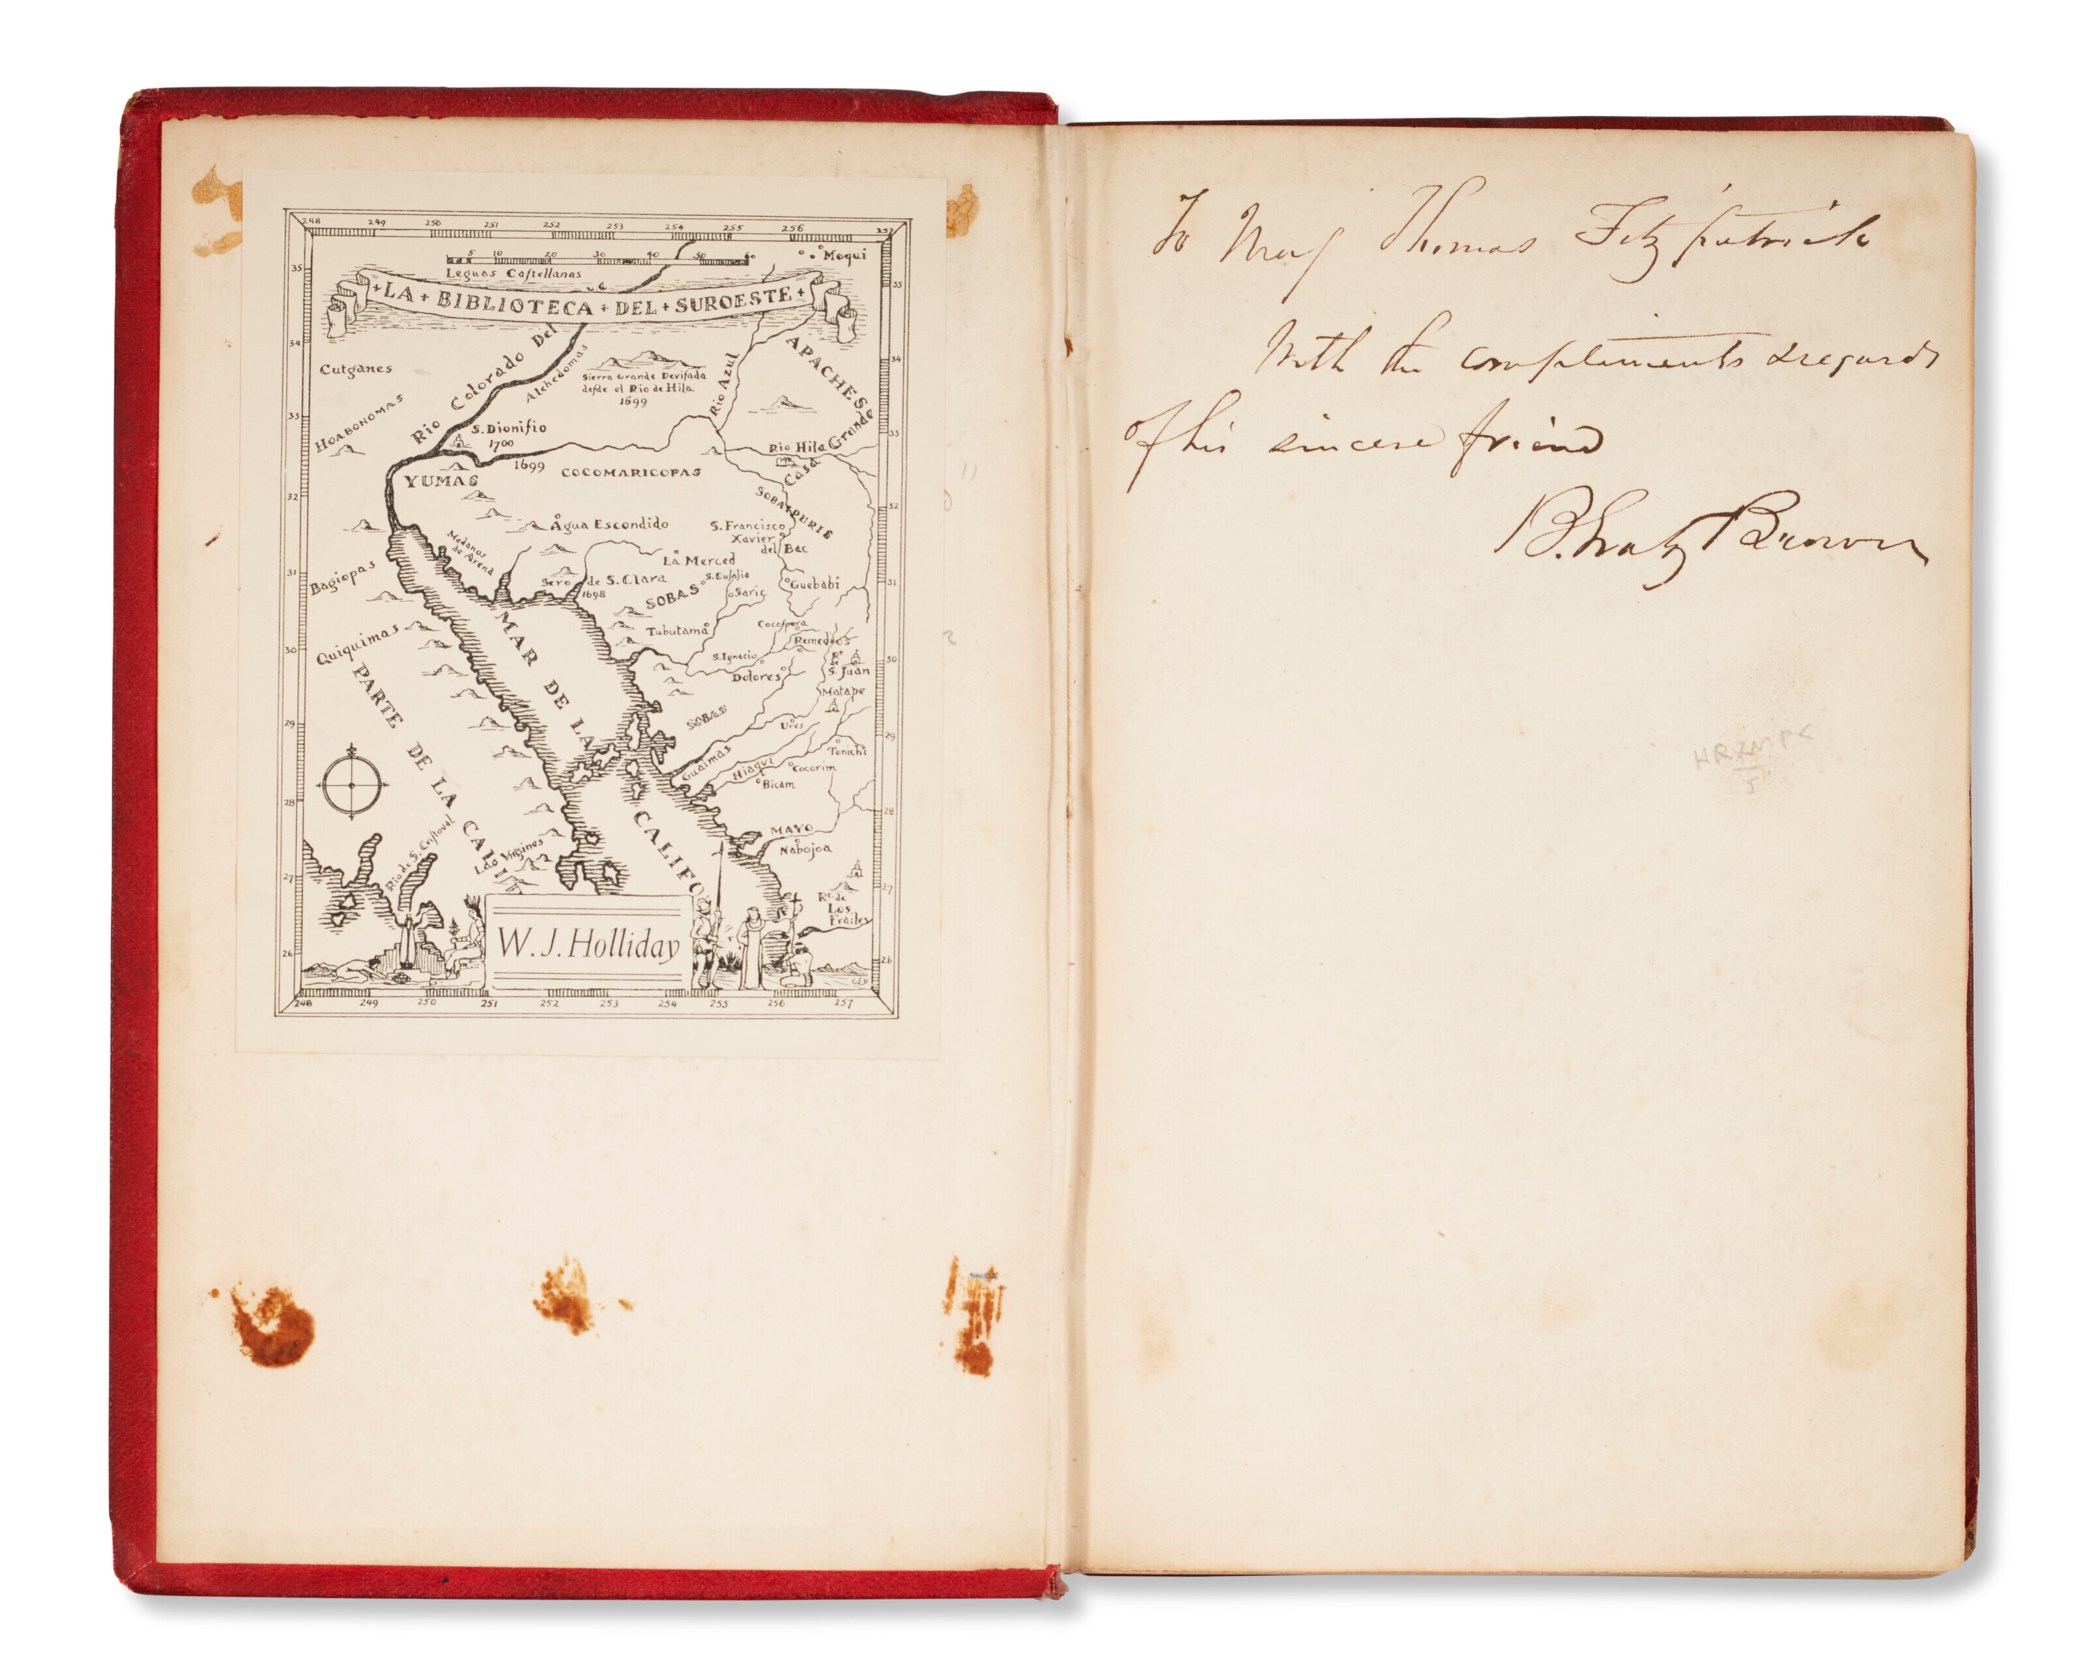 248 249 250 251 252 253 254 255 256 257
5 10 20 30 40 50 60
Leguas Caſtellanas
Moqui
LA + BIBLIOTECA + DEL + SUROESTE
35
35
34
34
33
33
32
32
31
31
30
30
29
29
28
28
27
27
26
26
Cutganes
Hoabonomas
Rio Colorado Del
Alchedomas
Sierra Grande Deviſada
deſde el Rio de Hila
1699
Rio Azul
APACHES
S. Dionifio
1700
1699
YUMAS
COCOMARICOPAS
Rio Hila
Casa Grande
SOBAIPURIS
Agua Escondido
S. Francisco
Xavier
del Bac
Medanos
de Arena
La Merced
Bagiopas
de S. Clara
1698
S. Eulalia
SOBAS
Saric
Guebabi
Tubutama
Cocoſpera
Remedios
Quiquimas
S. Ignacio
Dolores
S. Juan
Matape
SOBAS
Ures
Guaimas
Hiaqui
Tonichi
Cocorim
Bicam
MAR DE LA CALIFOR
PARTE DE LA CALIF
Rio de S. Criſtoval
Las Virgines
MAYO
Nabojoa
Rl. de
Los
Frailes
W. J. Holliday
248 249 250 251 252 253 254 255 256 257
To Maj Thomas Fitzpatrick
With the compliments & regards
of his sincere friend
B. Gratz Brown